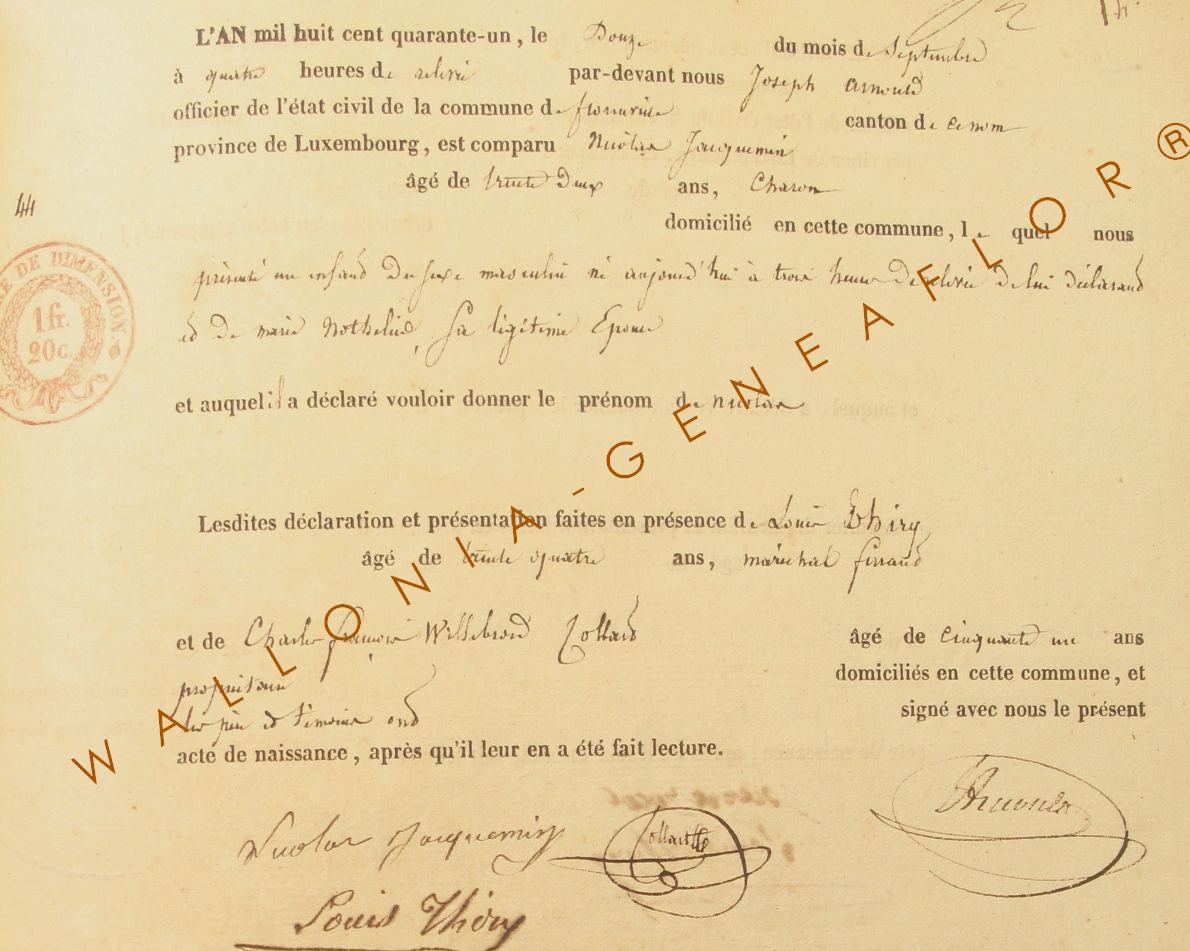 L'AN mil huit cent quarante-un, le Douze du mois de Septembre
à quatre heures de relevée par-devant nous Joseph Arnould
officier de l'état civil de la commune de florenville canton de
province de Luxembourg, est comparu Nicolas Jacquemin
âgé de trente Deux ans, Charon
domicilié en cette commune, le quel nous
44
présenté un enfant Du sexe masculin né aujourd'hui à trois heures De relevée de lui déclarant
et De marie Sa légitime Epouse
TIMBRE DE DIMENSION
1 fr.
20 c.
et auquel il a déclaré vouloir donner le prénom de nicolas
Lesdites déclaration et présentation faites en présence de Louis Thiry
âgé de trente quatre ans, maréchal ferrant
et de Charles françois Willebrord Collard âgé de cinquante un ans
propriétaire domiciliés en cette commune, et
les père et témoins ont signé avec nous le présent
acte de naissance, après qu'il leur en a été fait lecture.
Nicolas Jacquemin
Arnould
Louis Thiry
WALLONIA-GENEAFLOR®